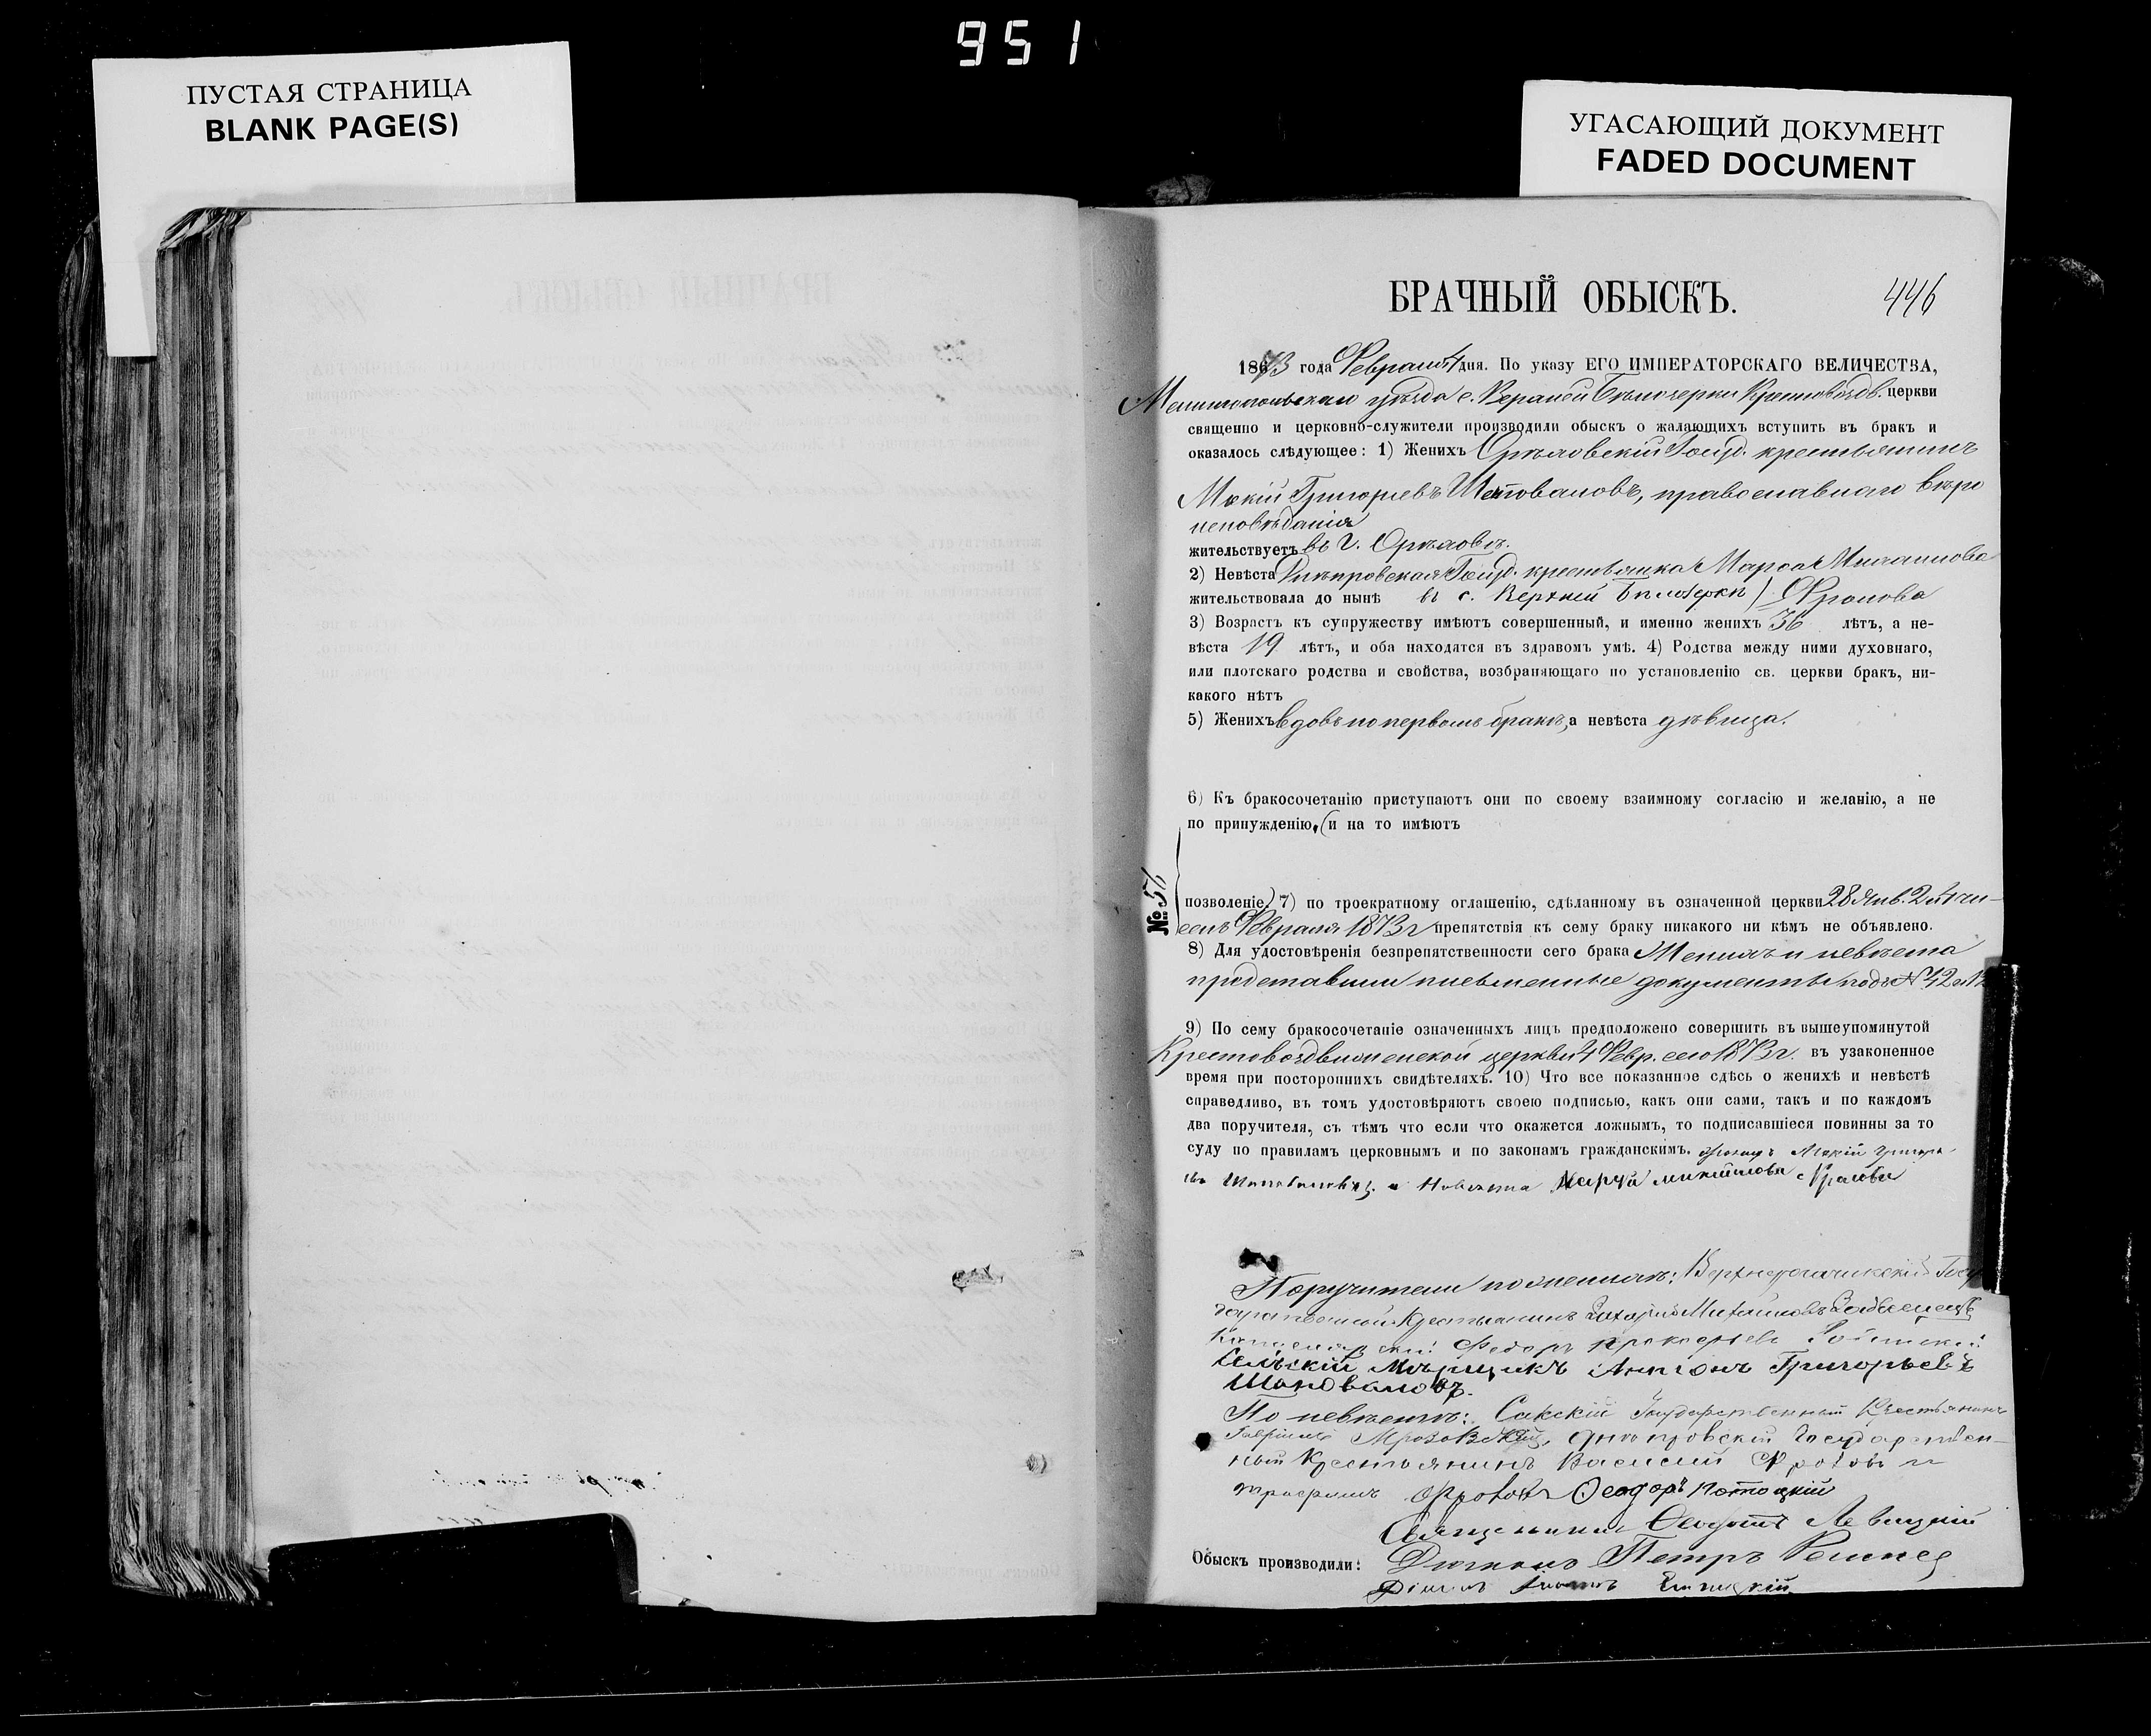 951
ПУСТАЯ СТРАНИЦА
BLANK PAGE(S)
УГАСАЮЩИЙ ДОКУМЕНТ
FADED DOCUMENT
БРАЧНЫЙ ОБЫСКЪ.
446
1873 года Февраля 4 дня. По указу ЕГО ИМПЕРАТОРСКАГО ВЕЛИЧЕСТВА,
Мелитопольскаго уѣзда с. Верхней Бѣлозерки Крестовоздв. церкви
священно и церковно-служители производили обыскъ о жалающихъ вступить въ бракъ и
оказалось слѣдующее: 1) Женихъ Орѣховскій Госуд. крестьянинъ
Мокій Григорьевъ Шаповаловъ, православнаго вѣро
исповѣданія
жительствуетъ въ г. Орѣховѣ.
2) Невѣста Днѣпровская Госуд. крестьянка Марѳа Михаилова
жительствовала до нынѣ въ с. Верхней Бѣлозеркѣ) Фролова
3) Возрастъ къ супружеству имѣютъ совершенный, и именно женихъ 36 лѣтъ, а не-
вѣста 19 лѣтъ, и оба находятся въ здравомъ умѣ. 4) Родства между ними духовнаго,
или плотскаго родства и свойства, возбраняющаго по установленію св. церкви бракъ, ни-
какого нѣтъ
5) Женихъ вдовъ по первомъ бракѣ, а невѣста дѣвица.
6) Къ бракосочетанію приступаютъ они по своему взаимному согласію и желанію, а не
по принужденію, (и на то имѣютъ
№ 56
позволеніе) 7) по троекратному оглашенію, сдѣланному въ означенной церкви 28 Янв. 2 и 4 чи-
селъ Февраля 1873 г препятствія къ сему браку никакого ни кѣмъ не объявлено.
8) Для удостовѣренія безпрепятственности сего брака Женихъ и невѣста
представили письменные документы подъ № 12 и
9) По сему бракосочетаніе означенныхъ лицъ предположено совершить въ вышеупомянутой
Крестовоздвиженской церкви 4 Февр. сего 1873 г. въ узаконенное
время при постороннихъ свидѣтеляхъ. 10) Что все показанное сдѣсь о женихѣ и невѣстѣ
справедливо, въ томъ удостовѣряютъ своею подписью, какъ они сами, такъ и по каждомъ
два поручителя, съ тѣмъ что если что окажется ложнымъ, то подписавшіеся повинны за то
суду по правиламъ церковнымъ и по законамъ гражданскимъ. Женихъ Мокій Григорь
Невѣста Марфа михайлова Фралова
Поручители по женихѣ: Верхнерогачикскій Госу
дарственный Крестьянинъ Захарій Михайловъ
Федоръ Прокофьевъ
Сельскій Мѣрщикъ Антонъ Григорьевъ
Шаповаловъ.
По невѣстѣ: Сакскій Государственный Крестьянинъ
Гавріилъ Днѣпровскій Государствен-
ный Крестьянинъ Василий Фроловъ и
Трофимъ Фроловъ Ѳеодоръ Котоцкій
Священникъ Ѳеодотъ Левицкій
Обыскъ производили: Дьяконъ Петръ